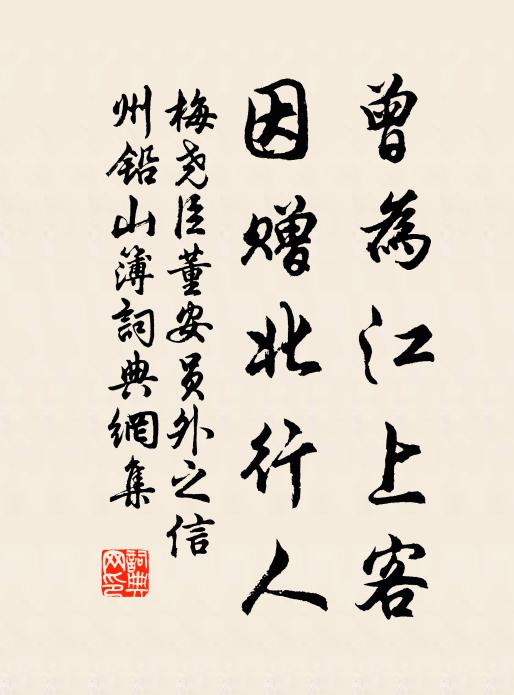 曾為江上客
因贈北行人
梅尧臣董安員外之信
州鉛山簿詞典網集
詞典網印